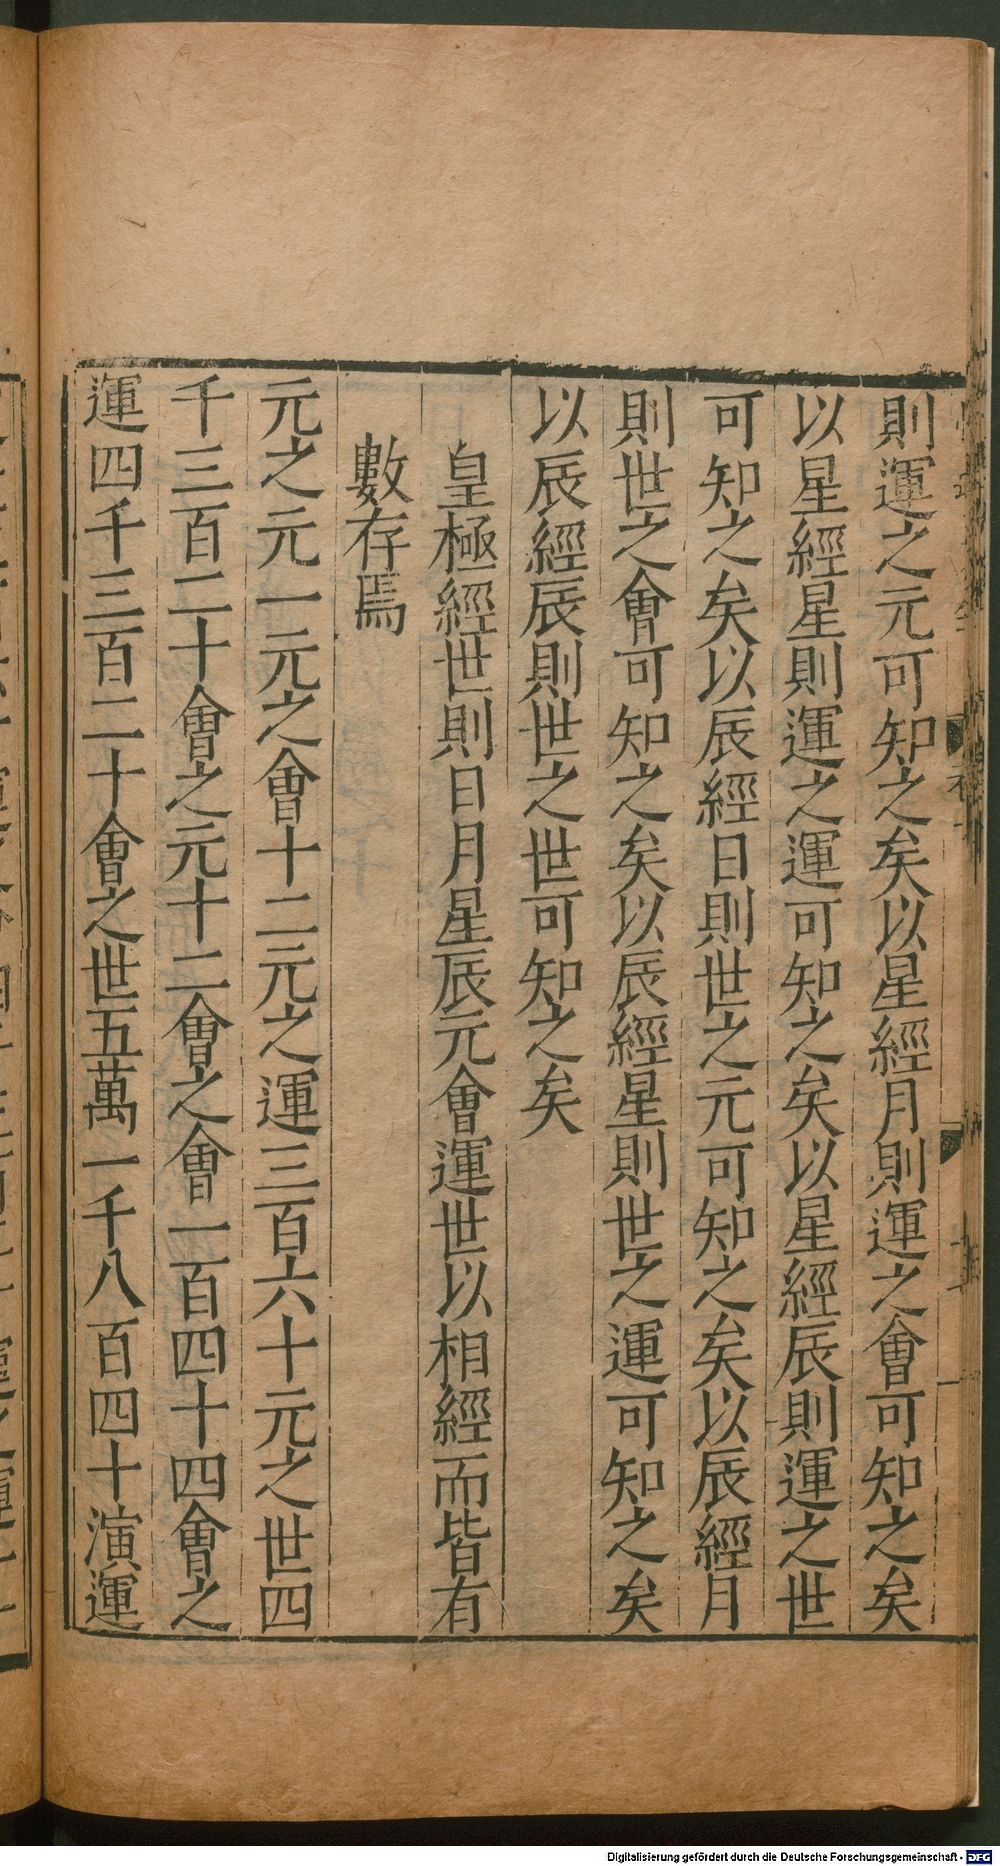 則運之元可知之矣以星經月則運之會可知之矣
以星經星則運之運可知之矣以星經辰則運之世
可知之矣以辰經日則世之元可知之矣以辰經月
則世之會可知之矣以辰經星則世之運可知之矣
以辰經辰則世之世可知之矣
皇極經世則日月星辰元會運世以相經而皆有
數存焉
元之元一元之會十二元之運三百六十元之世四
千三百二十會之元十二會之會一百四十四會之
運四千三百二十會之世五萬一千八百四十演運
Digitalisierung gefördert durch die Deutsche Forschungsgemeinschaft - DFG